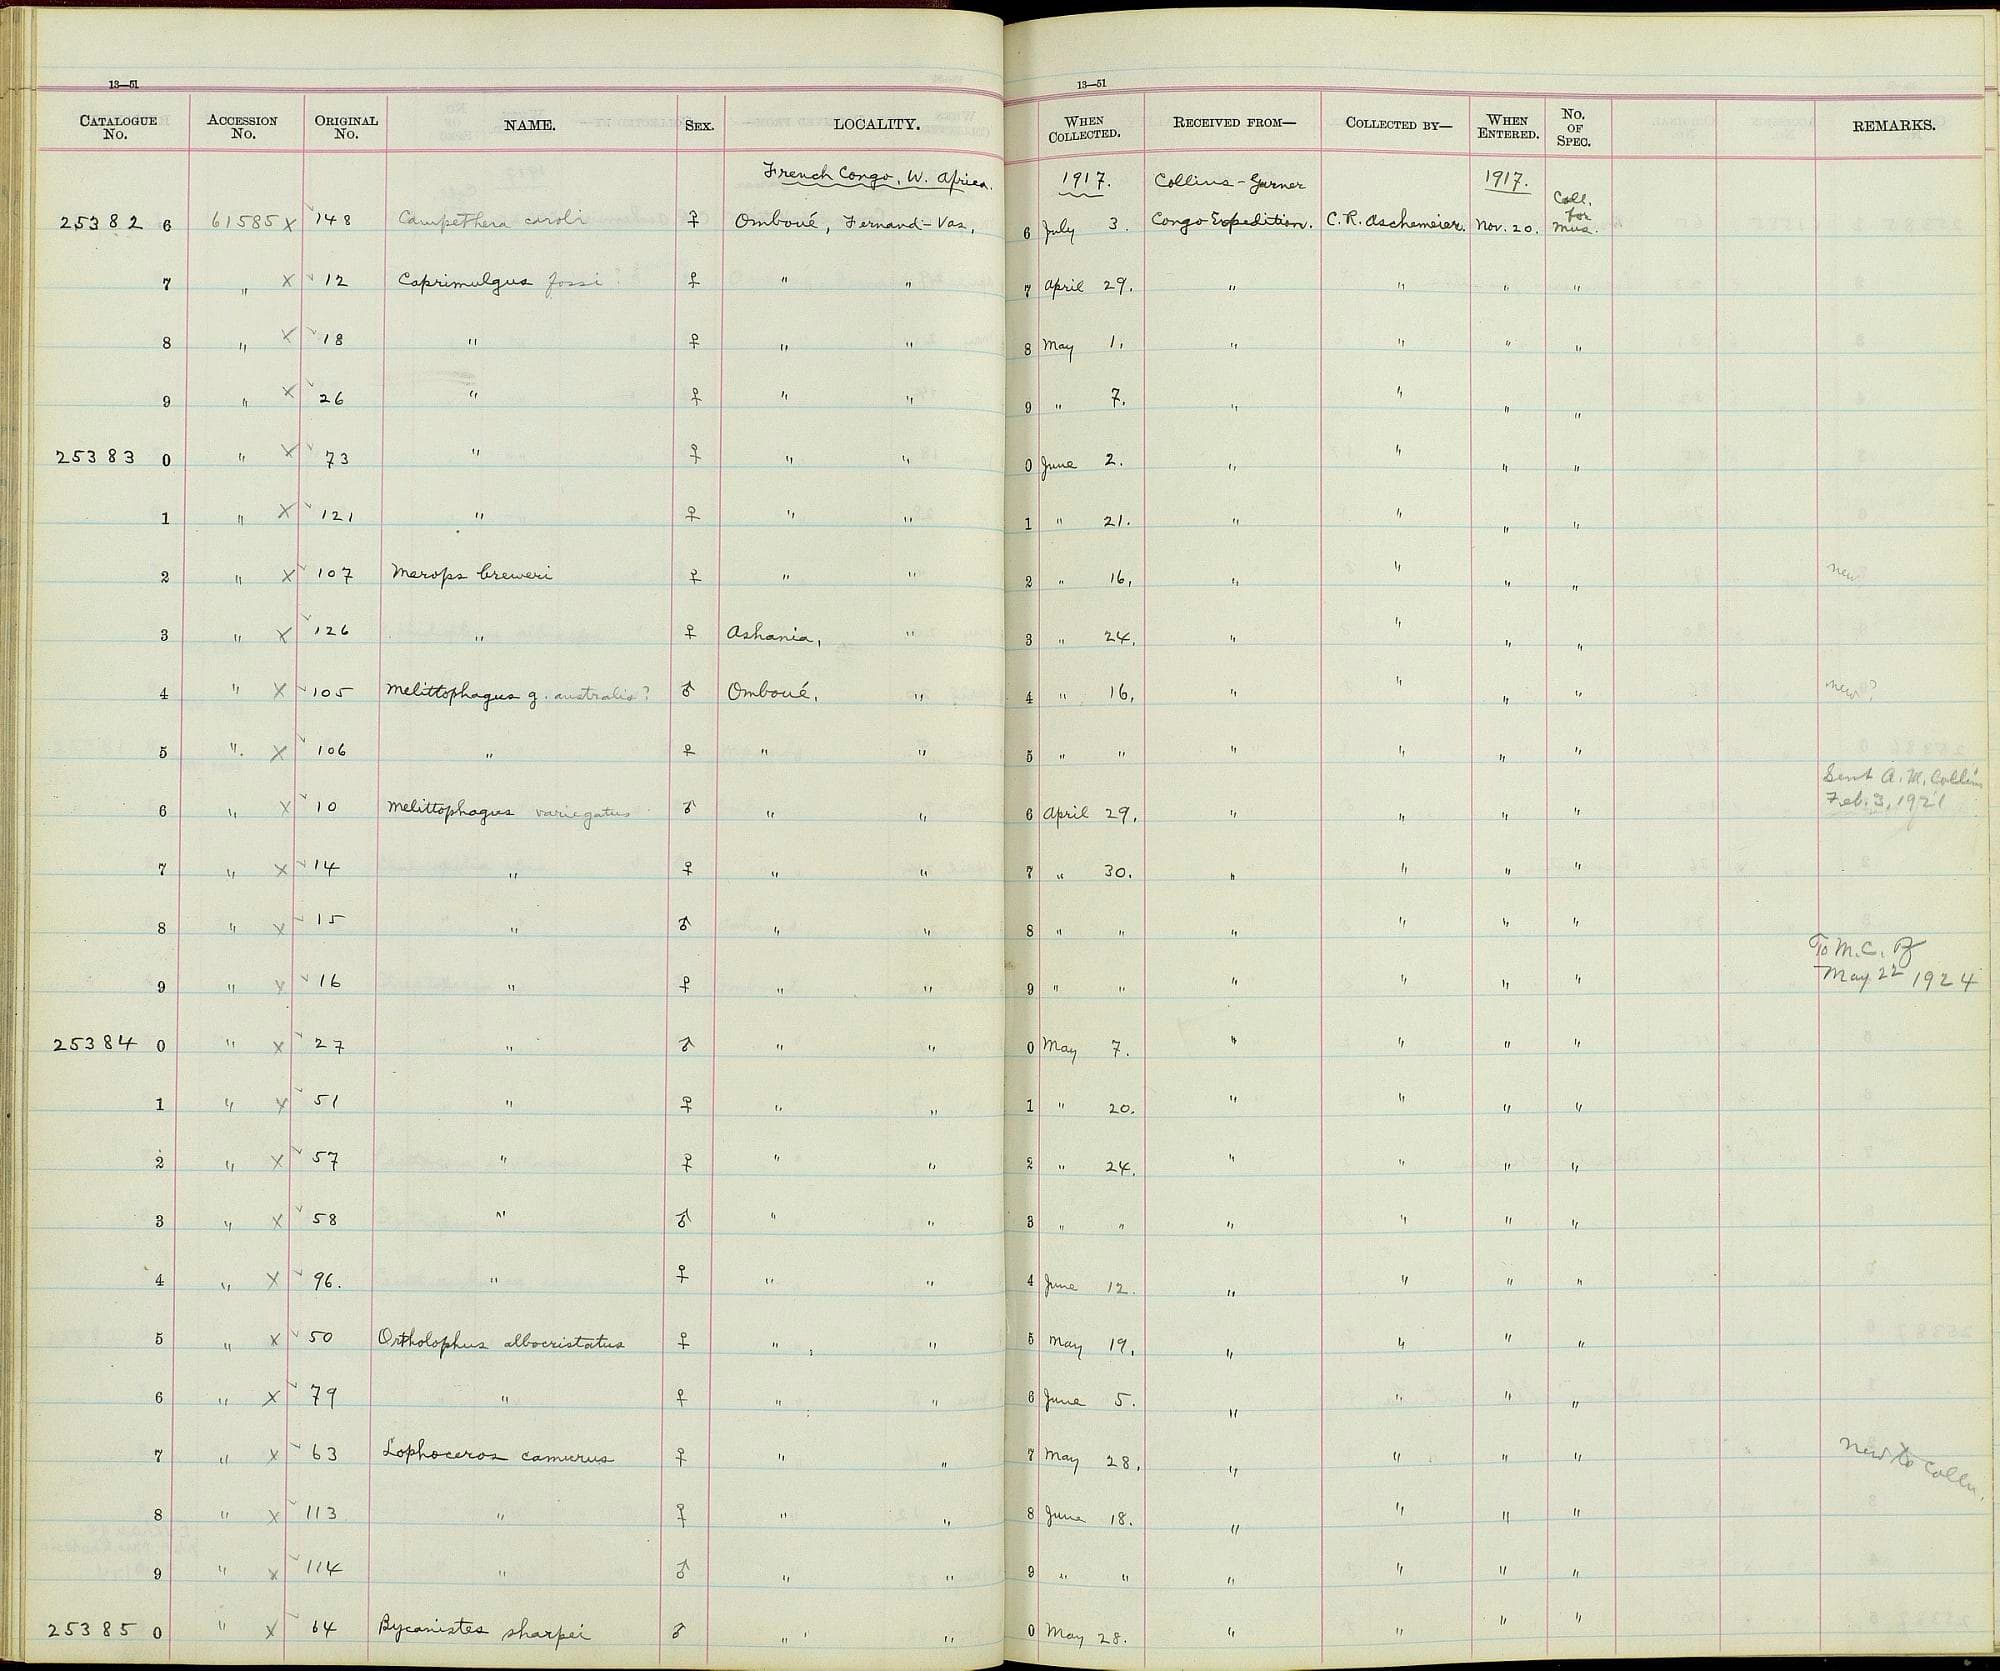 13—51 13—51
CATALOGUE No. ACCESSION No. ORIGINAL No. NAME. SEX. LOCALITY. WHEN COLLECTED. RECEIVED FROM— COLLECTED BY— WHEN ENTERED. No. OF SPEC. REMARKS.
French Congo, W. Africa. 1917. Collins-Garner 1917. Coll. for
25382 6 61585 X 148 Campethera caroli ♀ Omboué, Fernand-Vaz, 6 July 3. Congo Expedition. C. R. Aschemeier. Nov. 20. Mus.
7 " X 12 Caprimulgus fossi? ♀ " " 7 April 29. " " " "
8 " X 18 " ♀ " " 8 May 1, " " " "
9 " X 26 " ♀ " " 9 " 7. " " " "
25383 0 " X 73 " ♀ " " 0 June 2. " " " "
1 " X 121 " ♀ " " 1 " 21. " " " "
2 " X 107 Merops breweri ♀ " " 2 " 16, " " " " new
3 " X 126 " ♀ Ashania, " 3 " 24, " " " "
4 " X 105 Melittophagus g. australis? ♂ Omboué, " 4 " 16, " " " " new?
5 " X 106 " ♀ " " 5 " " " " " "
6 " X 10 Melittophagus variegatus ♂ " " 6 April 29, " " " " Sent A. M. Collins Feb. 3, 1921
7 " X 14 " ♀ " " 7 " 30. " " " "
8 " X 15 " ♂ " " 8 " " " " " "
9 " X 16 " ♀ " " 9 " " " " " " To M. C. Z May 22 1924
25384 0 " X 27 " ♂ " " 0 May 7. " " " "
1 " X 51 " ♀ " " 1 " 20. " " " "
2 " X 57 " ♀ " " 2 " 24. " " " "
3 " X 58 " ♂ " " 3 " " " " " "
4 " X 96. " ♀ " " 4 June 12. " " " "
5 " X 50 Ortholophus albocristatus ♀ " " 5 May 19, " " " "
6 " X 79 " ♀ " " 6 June 5. " " " "
7 " X 63 Lophoceros camurus ♀ " " 7 May 28, " " " " new to colln.
8 " X 113 " ♀ " " 8 June 18. " " " "
9 " X 114 " ♂ " " 9 " " " " " "
25385 0 " X 64 Bycanistes sharpei ♂ " " 0 May 28. " " " "